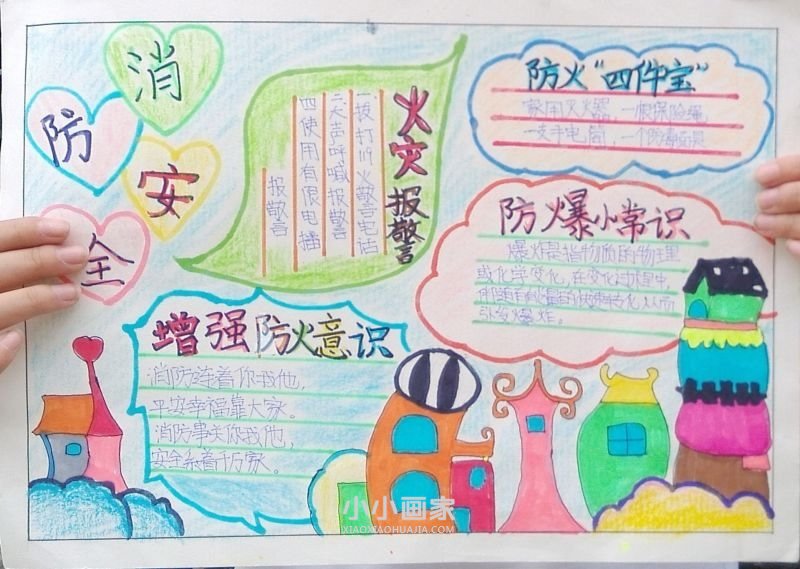 消
防
安
全
火灾报警
一拨打119火警电话
二大声呼喊报警
四使用有限电播
报警
防火“四件宝”
家用灭火器，一根保险绳
一支手电筒，一个防毒面具
防爆小常识
爆炸是指物质的物理
或化学变化，在变化过程中，
引发爆炸。
增强防火意识
消防连着你我他，
平安幸福靠大家。
消防事关你我他，
安全系着千万家。
小小画家
XIAOXIAOHUAJIA.COM